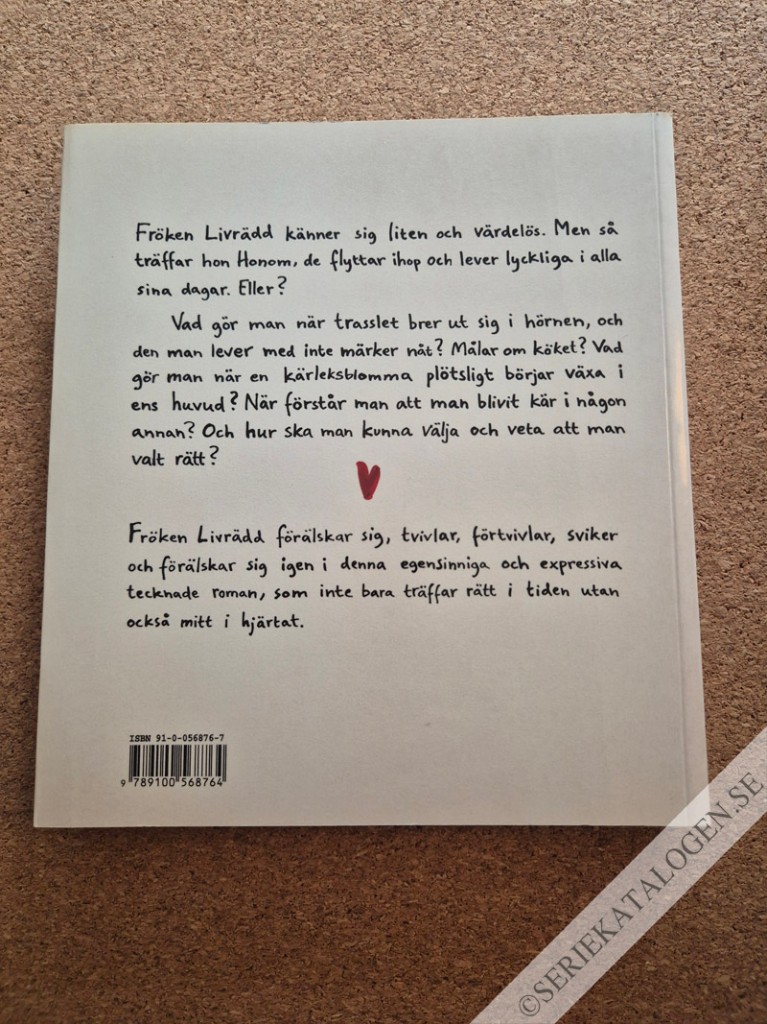 Fröken Livrädd känner sig liten och värdelös. Men så
träffar hon Honom, de flyttar ihop och lever lyckliga i alla
sina dagar. Eller?
Vad gör man när trasslet brer ut sig i hörnen, och
den man lever med inte märker nåt? Målar om köket? Vad
gör man när en kärleksblomma plötsligt börjar växa i
ens huvud? När förstår man att man blivit kär i någon
annan? Och hur ska man kunna välja och veta att man
valt rätt?
Fröken Livrädd förälskar sig, tvivlar, förtvivlar, sviker
och förälskar sig igen i denna egensinniga och expressiva
tecknade roman, som inte bara träffar rätt i tiden utan
också mitt i hjärtat.
ISBN 91-0-056876-7
9 789100 568764
©SERIEKATALOGEN.SE